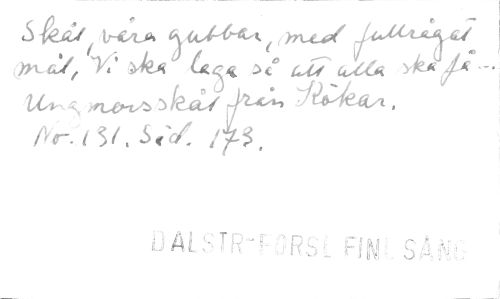 Skål, våra gubbar, med fullrågat
mål, Vi ska laga så att alla ska få --
Ungmorsskål från Kökar.
No. 131. Sid. 173.
DALSTR-FORSL FINL SÅNG